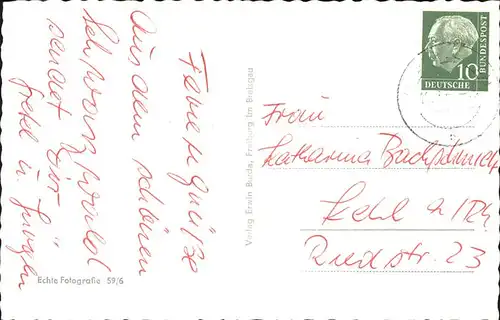 Feriengrüße
Aus dem schönen
Schwarzwald
sendet Dir
Gretel u. Jürgen
Echte Fotografie 59/6
Verlag Erwin Burda, Freiburg im Breisgau
10
DEUTSCHE
BUNDESPOST
Frau
Katharina
Kehl a/Rh
Riedstr. 23